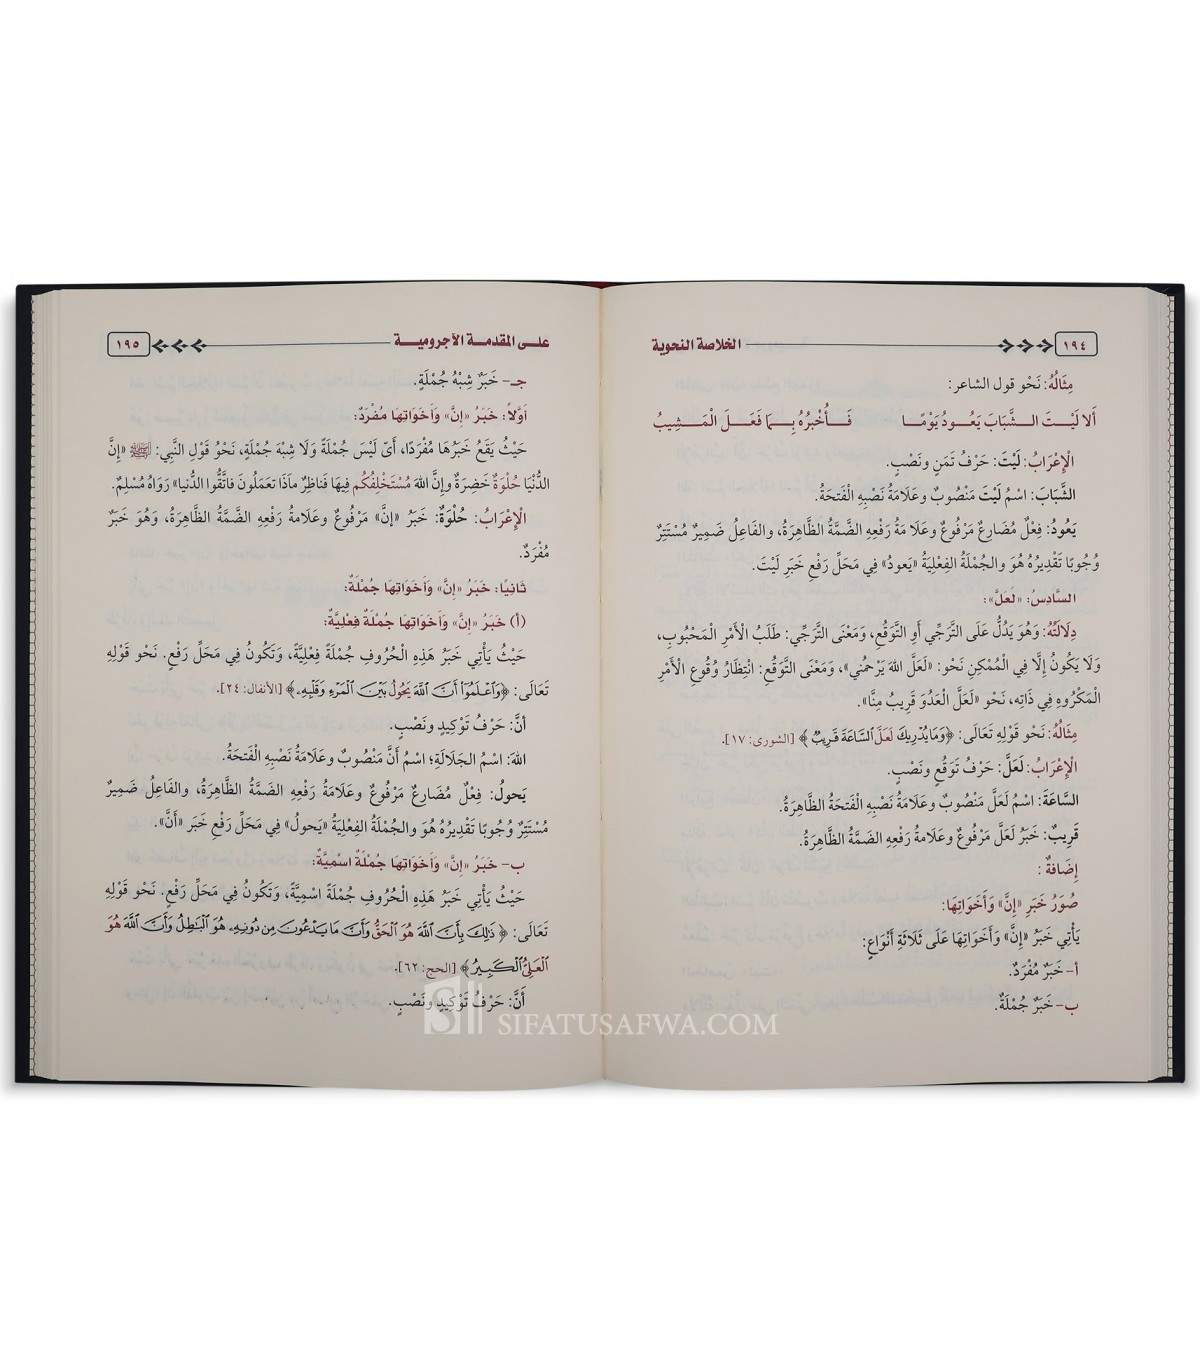 ١٩٤ الخلاصة النحوية
مِثَالُهُ: نَحْو قول الشاعر:
أَلا لَيْتَ الشَّبَابَ يَعُودُ يَوْمًا فَأُخْبِرُهُ بِمَا فَعَلَ الْمَشِيبُ
الْإِعْرَابُ: لَيْتَ: حَرْفُ تَمَنٍ ونَصْبٍ.
الشَّبَابَ: اسْمُ لَيْتَ مَنْصُوبٌ وعَلَامَةُ نَصْبِهِ الْفَتحَةُ.
يَعُودُ: فِعْلٌ مُضَارِعٌ مَرْفُوعٌ وعَلَا مَةُ رَفْعِهِ الضَّمَّةُ الظَّاهِرَةُ، والفَاعِلُ ضَمِيرٌ مُسْتَتِرٌ
وُجُوبًا تَقْدِيرُهُ هُوَ والجُمْلَةُ الفِعْلِيَةُ «يَعودُ» فِي مَحَلِّ رَفْعِ خَبَرِ لَيْتَ.
السَّادِسُ: «لَعَلَّ»:
دِلَالَتُهُ: وَهُوَ يَدُلُّ عَلَى التَّرَجِّي أَوِ التَّوَقُعِ، وَمَعْنَى التَّرَجِّي: طَلَبُ الْأَمْرِ الْمَحْبُوبِ،
وَلَا يَكُونُ إِلَّا فِي الْمُمْكِنِ نَحْو: «لَعَلَّ اللهَ يَرْحَمُنِي»، وَمَعْنَى التَّوَقُعِ: انْتِظَارُ وُقُوعِ الْأَمْرِ
الْمَكْرُوهِ فِي ذَاتِه، نَحْو «لَعَلَّ الْعَدُوَ قَرِيبُ مِنَّا».
مِثَالُهُ: نَحْو قَوْلِهِ تَعَالَى: ﴿وَمَا يُدْرِيكَ لَعَلَّ ٱلسَّاعَةَ قَرِيبٌ﴾ [الشورى: ١٧].
الْإِعْرَابُ: لَعَلَّ: حَرْفُ تَوَقُعٍ ونَصْبٍ.
السَّاعَةَ: اسْمُ لَعَلَّ مَنْصُوبٌ وعَلَامَةُ نَصْبِهِ الْفَتحَةُ الظَّاهِرَةُ.
قَرِيبٌ: خَبَرُ لَعَلَّ مَرْفُوعٌ وعَلَامةُ رَفْعِهِ الضَّمَّةُ الظَّاهِرَةُ.
إِضَافةٌ :
صُوَرُ خَبَرِ «إِنَّ» وَأَخَوَاتِهَا:
يَأْتِي خَبَرُ «إِنَّ» وَأَخَوَاتِهَا عَلَى ثَلَاثَةِ أَنْوَاعٍ:
أ- خَبَرٌ مُفْرَدٌ.
ب- خَبَرٌ جُمْلَةٌ.
على المقدمة الآجرومية ١٩٥
جـ- خَبَرٌ شِبْهُ جُمْلَةٍ.
أَوَّلاً: خَبَرُ «إِنَّ» وَأَخَوَاتِهَا مُفْرَدٌ:
حَيْثُ يَقَعُ خَبَرُهَا مُفْرَدًا، أَىْ لَيْسَ جُمْلَةً وَلَا شِبْهَ جُمْلَةٍ، نَحْوُ قَوْلِ النَّبِي: ﷺ «إِنَّ
الدُّنْيَا حُلْوَةٌ خَضِرَةٌ وإِنَّ اللهَ مُسْتَخْلِفُكُم فِيهَا فَناظِرٌ ماَذَا تعَمَلُونَ فاتَّقُوا الدُّنيا» رَوَاهُ مُسْلِمٌ.
الْإِعْرَابُ: حُلْوَةٌ: خَبَرُ «إِنَّ» مَرْفُوعٌ وعَلَامةُ رَفْعِهِ الضَّمَّةُ الظَّاهِرَةُ، وَهُوَ خَبَرٌ
مُفْرَدٌ.
ثَانِيًا: خَبَرُ «إِنَّ» وَأَخَوَاتِهَا جُمْلَةٌ:
(أ) خَبَرُ «إِنَّ» وَأَخَوَاتِهَا جُمْلَةٌ فِعْلِيَّةٌ:
حَيْثُ يَأْتِي خَبَرُ هَذِهِ الْحُرُوفِ جُمْلَةً فِعْلِيَّةً، وَتَكُونُ فِي مَحَلِّ رَفْعٍ. نَحْو قَوْلِهِ
تَعَالَى: ﴿وَٱعْلَمُوٓا۟ أَنَّ ٱللَّهَ يَحُولُ بَيْنَ ٱلْمَرْءِ وَقَلْبِهِۦ﴾ [الأنفال: ٢٤].
أَنَّ: حَرْفُ تَوْكِيدٍ ونَصْبٍ.
اللهَ: اسْمُ الْجَلَالَةِ؛ اسْمُ أَنَّ مَنْصُوبٌ وعَلَامَةُ نَصْبِهِ الْفَتحَةُ.
يَحولُ: فِعْلٌ مُضَارعٌ مَرْفُوعٌ وعَلَامَةُ رَفْعِهِ الضَّمَّةُ الظَّاهِرَةُ، والفَاعِلُ ضَمِيرٌ
مُسْتَتِرٌ وُجُوبًا تَقْدِيرُهُ هُوَ والجُمْلَةُ الفِعْلِيَّةُ «يَحولُ» فِي مَحَلِّ رَفْعِ خَبَرِ «أَنَّ».
ب- خَبَرُ «إِنَّ» وَأَخَوَاتِهَا جُمْلَةٌ اسْمِيَّةٌ:
حَيْثُ يَأْتِي خَبَرُ هَذِهِ الْحُرُوفِ جُمْلَةً اسْمِيَّةً، وَتَكُونُ فِي مَحَلِّ رَفْعٍ. نَحْو قَوْلِهِ
تَعَالَى: ﴿ذَٰلِكَ بِأَنَّ ٱللَّهَ هُوَ ٱلْحَقُّ وَأَنَّ مَا يَدْعُونَ مِن دُونِهِۦ هُوَ ٱلْبَٰطِلُ وَأَنَّ ٱللَّهَ هُوَ
ٱلْعَلِىُّ ٱلْكَبِيرُ﴾ [الحج: ٦٢].
أَنَّ: حَرْفُ تَوْكِيدٍ ونَصْبٍ.
SIFATUSAFWA.COM